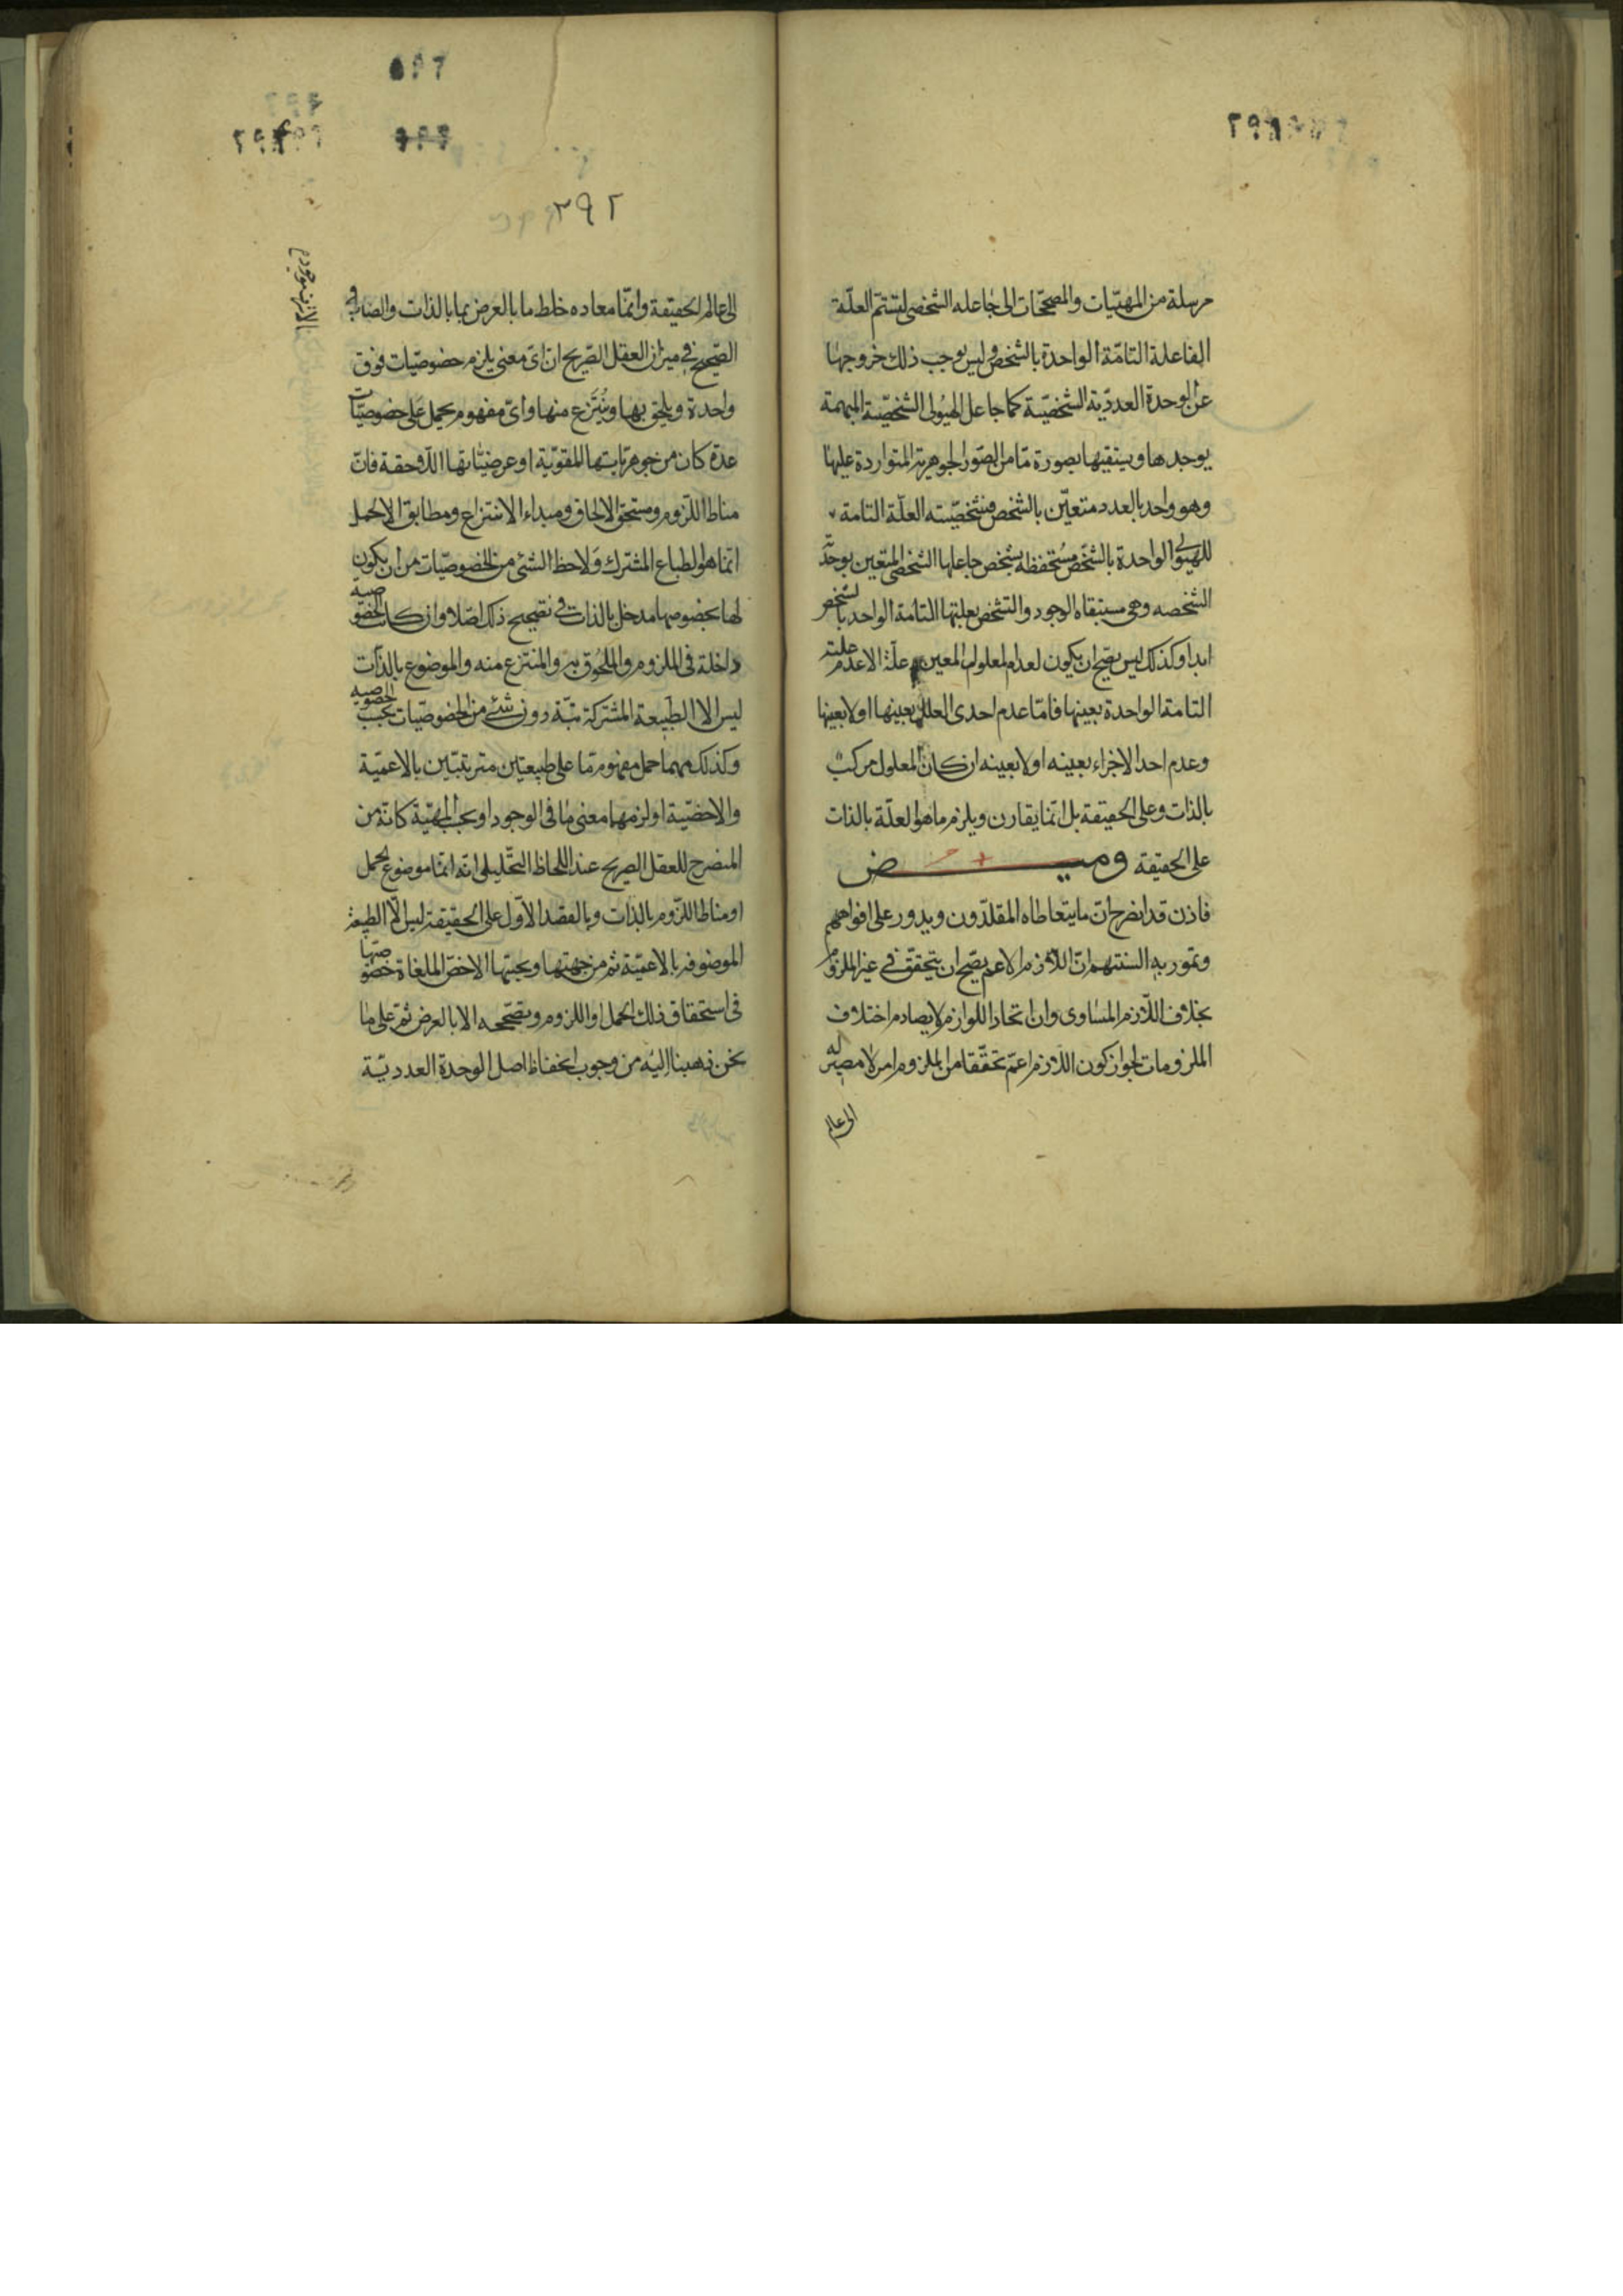 مرسلة من المهيّات والمصحّحات الى جاعله الشخصى ليتمّ العلّة
الفاعلة التامّة الواحدة بالشخص وليس يوجب ذلك خروجها
عن الوحدة العدديّة الشخصيّة كما جاعل الهيولى الشخصيّة المبهمة
يوجدها ويستبقيها بصورة مّا من الصّور الجوهريّة المتواردة عليها
وهو واحد بالعدد متعيّن بالشخص فشخصيّته العلّة التامة
للهيولى الواحدة بالشخص مستحفظة بشخص جاعلها الشخصى المتعين بوحدته
الشخصه وهى مستبقاه الوجود والتشخص بعلتها التامة الواحد بالشخص
ابدا وكذلك ليس يصحّ ان يكون لعدم المعلول المعين علّة الا عدم علته
التامة الواحدة بعينها فامّا عدم احدى العلل بعينها او لا بعينها
وعدم احد الاجزاء بعينه او لا بعينه ان كان المعلول مركب
بالذات وعلى الحقيقة بل انّما يقارن ويلزم ما هو العلّة بالذات
على الحقيقة وميـــض
فاذن قد انصرح انّ ما يتعاطاه المقلّدون ويدور على افواههم
وتمور به السنتهم انّ اللازم الاعم يصحّ ان يتحقق فى غير الملزوم
بخلاف اللّازم المساوى وان اتحاد اللوازم لا يصادم اختلاف
الملزومات لجواز كون اللازم اعمّ تحقّقا من الملزوم امر لا مصير له
الى عالم
٢٩٢
الى عالم الحقيقة وانّما معاده خلط ما بالعرض بما بالذات والضابط
الصّحيح فى ميزان العقل الصّريح انّ اىّ معنى يلزم خصوصيّات فوق
واحدة ويلحق بها وينتزع منها واىّ مفهوم يحمل على خصوصيّات
عدة كان من جوهريّاتها المقوّمة او عرضيّاتها اللّاحقة فانّ
مناط اللّزوم ومستحق الالحاق ومبداء الانتزاع ومطابق الحمل
انّما هو الطباع المشترك ولا حظ لشئ من الخصوصيّات من ان يكون
لها بخصوصها مدخل بالذات فى تصحيح ذلك اصلا وان كانت الخصوصيه
داخلة فى الملزوم والملحوق به والمنتزع منه والموضوع بالذات
ليس الا الطبيعة المشتركة بتّة دون شئ من الخصوصيّات بحسب الخصوصيه
وكذلك مهما حمل مفهوم مّا على طبيعتين مترتبتين بالاعميّة
والاخصّية او لزمهما معنى مّا فى الوجود او بحسب المهيّة كانّه من
المنصرح للعقل الصريح عند اللحاظ التحليلى انّه انّما موضوع الحمل
او مناط اللّزوم بالذات وبالقصد الاوّل على الحقيقة ليس الّا الطبيعة
الموصوفه بالاعميّة ثم من جهتها وبحسبها الاخصّ الملغاة خصوصيتها
فى استحقاق ذلك الحمل او اللزوم وتصحّحه الا بالعرض ثمّ على ما
نحن ذهبنا اليه من وجوب انحفاظ اصل الوحدة العدديّة